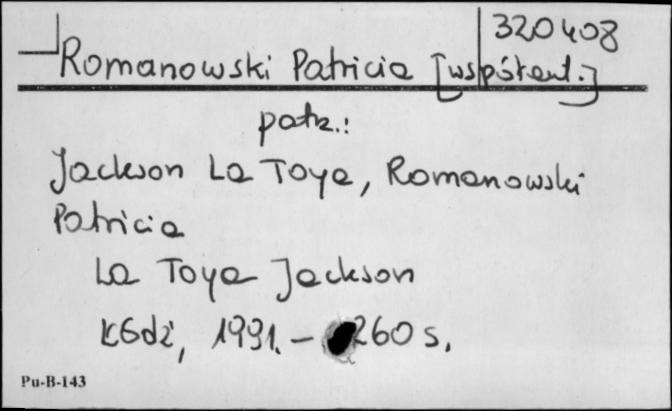 320408
Romanowski Patricia [współaut.]
patrz.:
Jackson La Toya, Romanowski
Patricia
La Toya Jackson
Łódź, 1991. - 260 s.
Pu-B-143